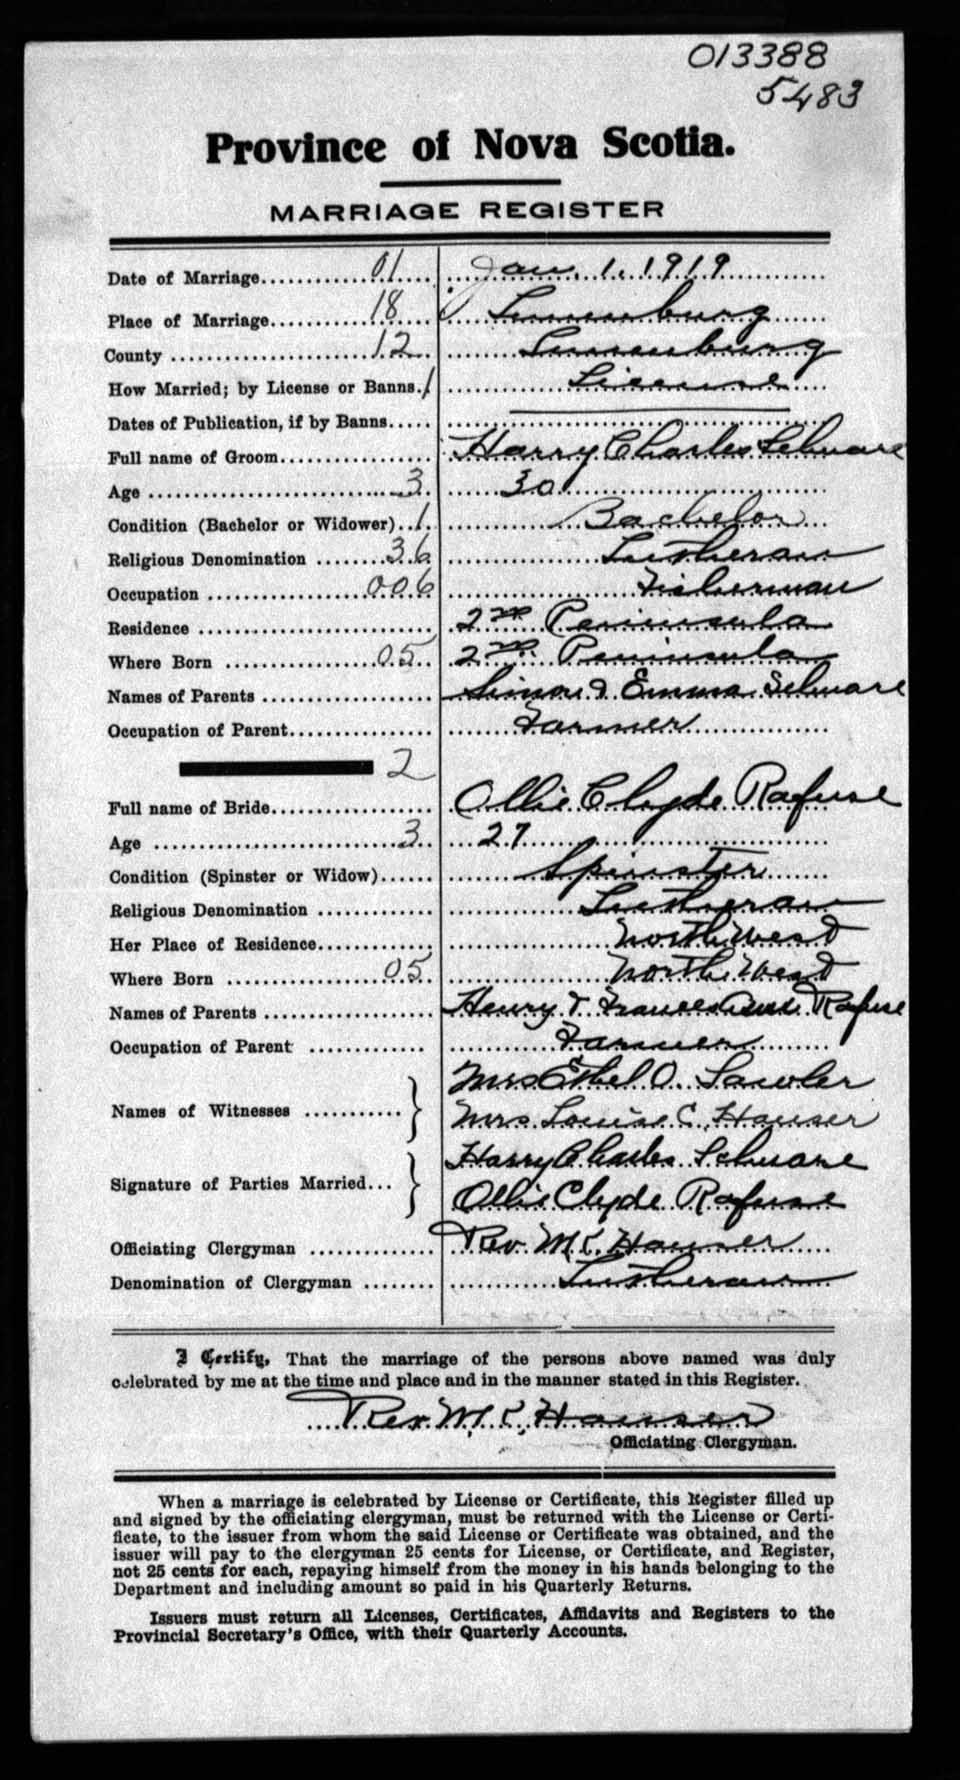 013388
5483
Province of Nova Scotia.
MARRIAGE REGISTER
Date of Marriage 01 Jan. 1. 1919
Place of Marriage 18 Lunenburg
County 12 Lunenburg
How Married; by License or Banns. 1 License
Dates of Publication, if by Banns
Full name of Groom Harry Charles Schware
Age 3 30
Condition (Bachelor or Widower) 1 Bachelor
Religious Denomination 36 Lutheran
Occupation 006 Fisherman
Residence 2nd Peninsula
Where Born 05 2nd Peninsula
Names of Parents Simon & Emma Schware
Occupation of Parent Farmer
2
Full name of Bride Ollie Clyde Rafuse
Age 3 27
Condition (Spinster or Widow) Spinster
Religious Denomination Lutheran
Her Place of Residence North West
Where Born 05 North West
Names of Parents Henry & Frances Rafuse
Occupation of Parent Farmer
Names of Witnesses Mrs Ethel O. Sawler
Mrs. Louise C. Hauser
Signature of Parties Married Harry Charles Schware
Ollie Clyde Rafuse
Officiating Clergyman Rev. M. K. Hauser
Denomination of Clergyman Lutheran
I Certify, That the marriage of the persons above named was duly
celebrated by me at the time and place and in the manner stated in this Register.
Rev. M. K. Hauser
Officiating Clergyman.
When a marriage is celebrated by License or Certificate, this Register filled up
and signed by the officiating clergyman, must be returned with the License or Certi-
ficate, to the issuer from whom the said License or Certificate was obtained, and the
issuer will pay to the clergyman 25 cents for License, or Certificate, and Register,
not 25 cents for each, repaying himself from the money in his hands belonging to the
Department and including amount so paid in his Quarterly Returns.
Issuers must return all Licenses, Certificates, Affidavits and Registers to the
Provincial Secretary's Office, with their Quarterly Accounts.